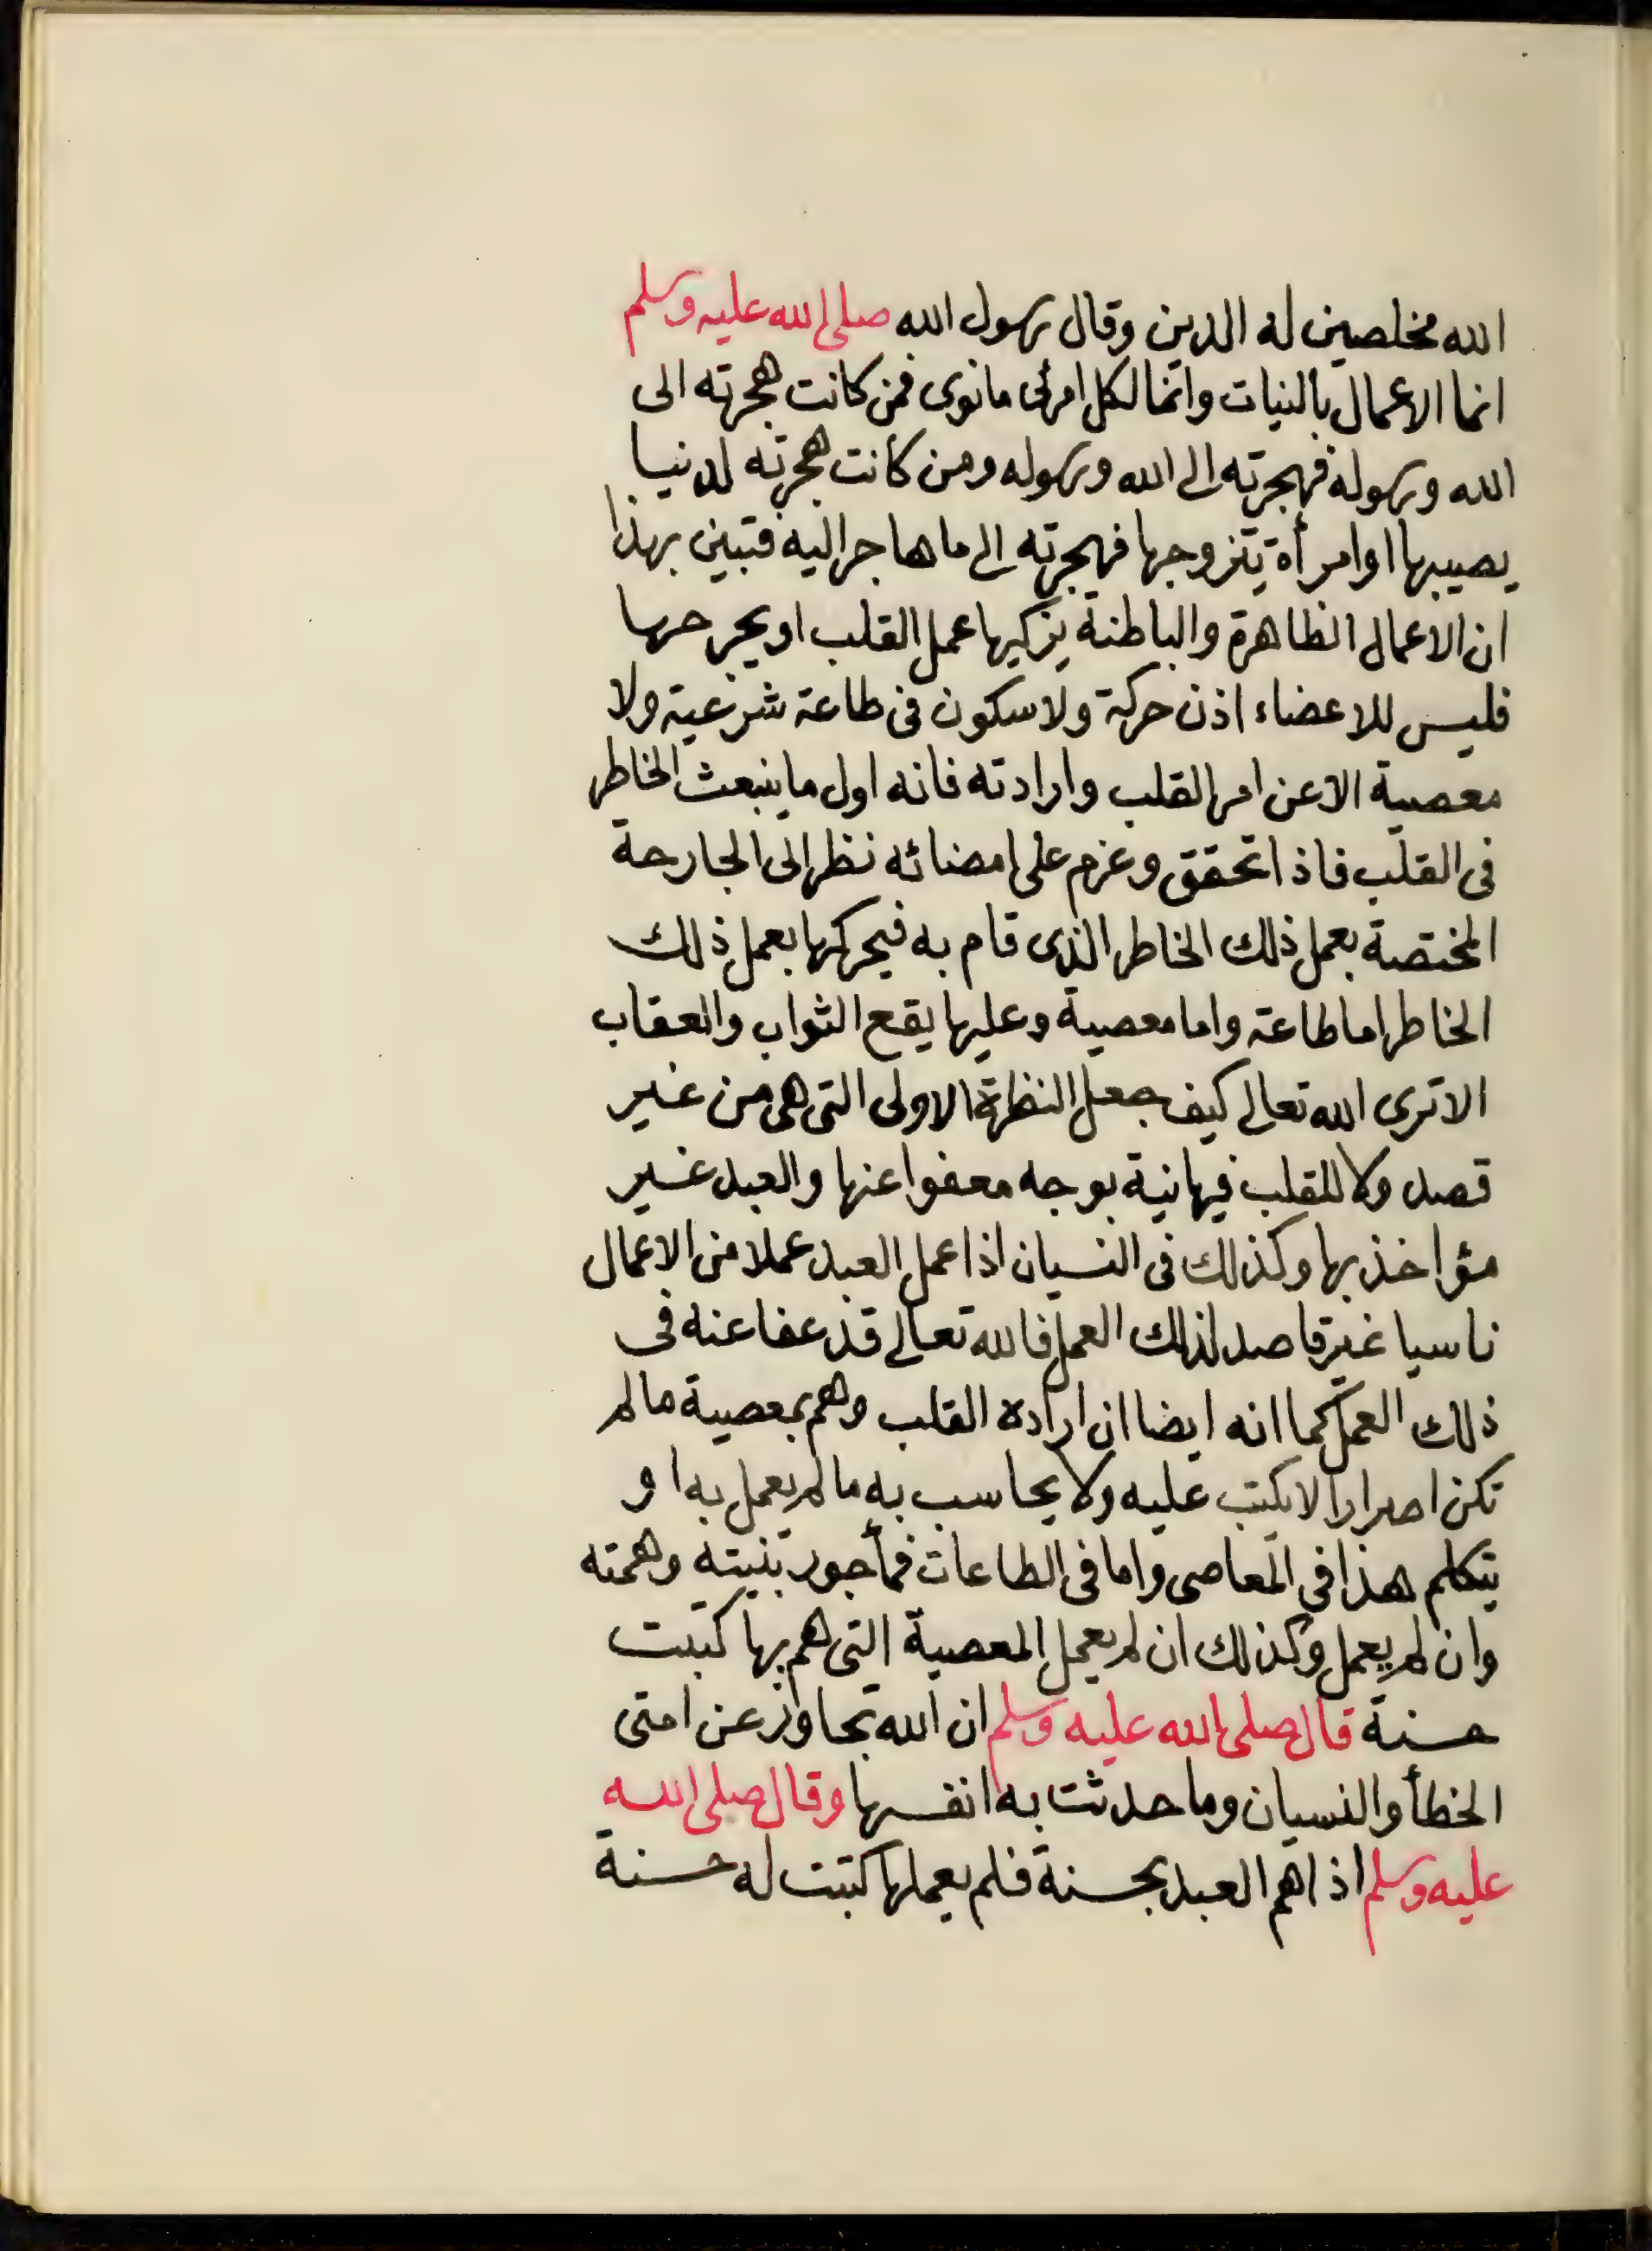 الله مخلصين له الدين وقال رسول الله صلى الله عليه وسلم
انما الاعمال بالنيات وانما لكل امرئ ما نوى فمن كانت هجرته الى
الله ورسوله فهجرته الى الله ورسوله ومن كانت هجرته لدنيا
يصيبها او امرأة يتزوجها فهجرته الى ما هاجر اليه فتبين بهذا
ان الاعمال الظاهرة والباطنة يزكيها عمل القلب او يجرحها
فليس للاعضاء اذن حركة ولا سكون فى طاعة شرعية ولا
معصية الا عن امر القلب وارادته فانه اول ما ينبعث الخاطر
فى القلب فاذا تحقق وعزم على امضائه نظر الى الجارحة
المختصة بعمل ذلك الخاطر الذى قام به فيحركها بعمل ذلك
الخاطر اما طاعة واما معصية وعليها يقع الثواب والعقاب
الا ترى الله تعالى كيف جعل النظرة الاولى التى هى من غير
قصد ولا للقلب فيها نية بوجه معفوا عنها والعبد غير
مؤاخذ بها وكذلك فى النسيان اذا عمل العبد عملا من الاعمال
ناسيا غير قاصد لذلك العمل فالله تعالى قد عفا عنه فى
ذلك العمل كما انه ايضا ان ارادة القلب وهم بمعصية ما لم
تكن اصرارا لا يكتب عليه ولا يحاسب به ما لم يعمل به او
يتكلم هذا في المعاصى واما فى الطاعات فمأجور بنيته وهمته
وان لم يعمل وكذلك ان لم يعمل المعصية التى هم بها كتبت
حسنة قال صلى الله عليه وسلم ان الله تجاوز عن امتى
الخطأ والنسيان وما حدثت به انفسها وقال صلى الله
عليه وسلم اذا هم العبد بحسنة فلم يعملها كتبت له حسنة